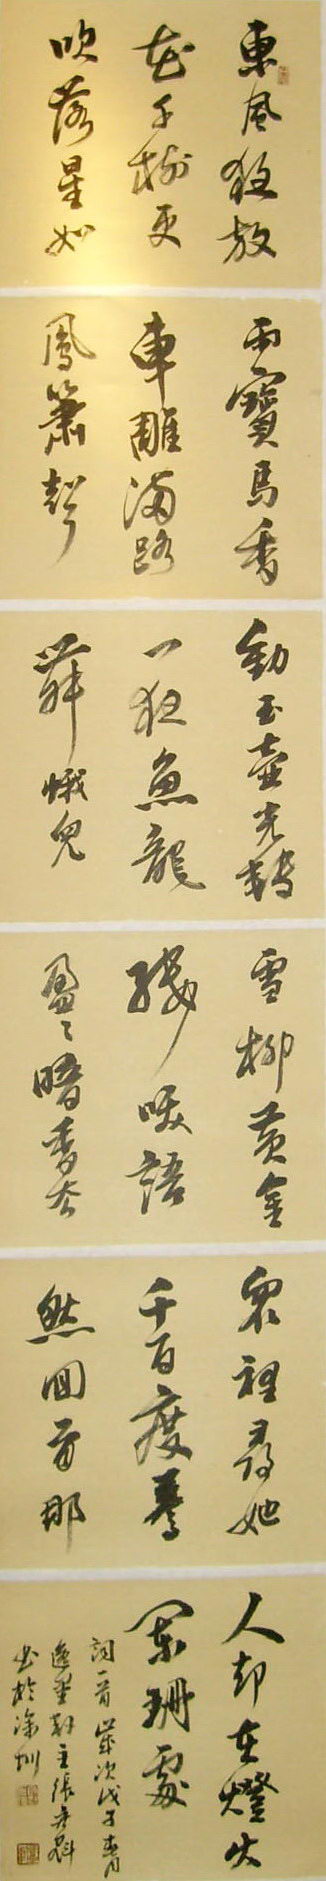 東風夜放
花千樹更
吹落星如
雨寶馬香
車雕滿路
鳳簫聲
動玉壺光轉
一夜魚龍
舞蛾兒
雪柳黃金
縷咲語
盈々暗香去
眾裡尋她
千百度驀
然回首那
人却在燈火
闌珊處
詞一首歲次戊子春月
逸墨軒主張
書於深圳